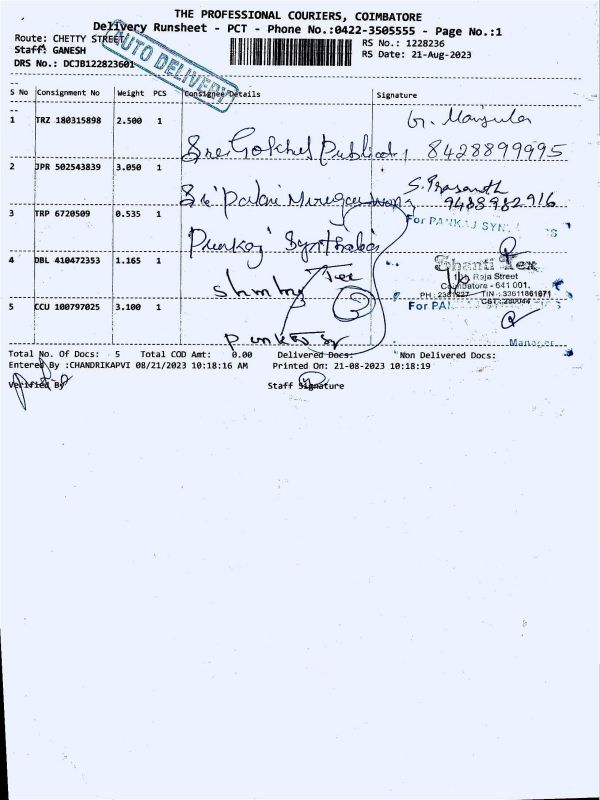 THE PROFESSIONAL COURIERS, COIMBATORE
Delivery Runsheet - PCT - Phone No.:0422-3505555 - Page No.:1
Route: CHETTY STREET
RS No.: 1228236
Staff: GANESH
RS Date: 21-Aug-2023
DRS No.: DCJB122823601
AUTO DELIVERY
S No Consignment No Weight PCS Consignee Details Signature
1 TRZ 180315898 2.500 1
G. Manjula
8428899995
2 JPR 502543839 3.050 1
S. Prasanth
9488982916
3 TRP 6720509 0.535 1
For PANKAJ SYN
Pankaj Synthetics
4 DBL 410472353 1.165 1
Shanti Tex
Raja Street
Coimbatore - 641 001.
5 CCU 100797025 3.100 1
For PAN
Manager
Total No. Of Docs: 5 Total COD Amt: 0.00 Delivered Docs: Non Delivered Docs:
Entered By :CHANDRIKAPVI 08/21/2023 10:18:16 AM Printed On: 21-08-2023 10:18:19
Verified By Staff Signature